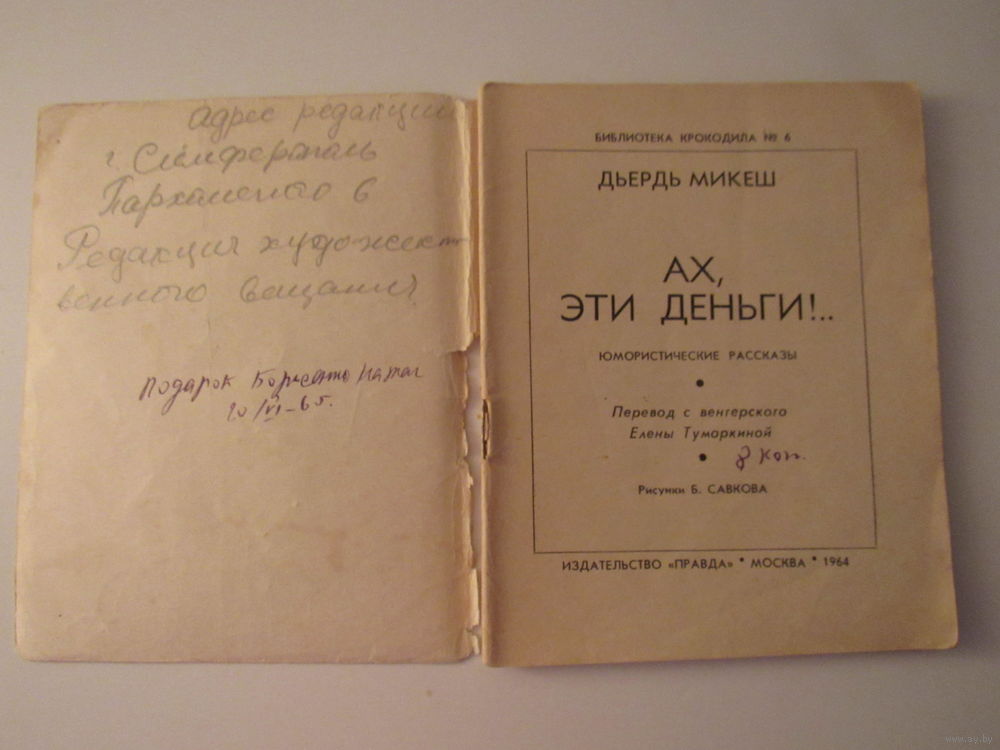 адрес редакции
г. Симферополь
Пархоменко 6
Редакция художест
венного вещания
Подарок
20/VI-65.
БИБЛИОТЕКА КРОКОДИЛА № 6
ДЬЕРДЬ МИКЕШ
АХ,
ЭТИ ДЕНЬГИ!..
ЮМОРИСТИЧЕСКИЕ РАССКАЗЫ
Перевод с венгерского
Елены Тумаркиной
8 коп.
Рисунки Б. САВКОВА
ИЗДАТЕЛЬСТВО «ПРАВДА» • МОСКВА • 1964
www.ay.by